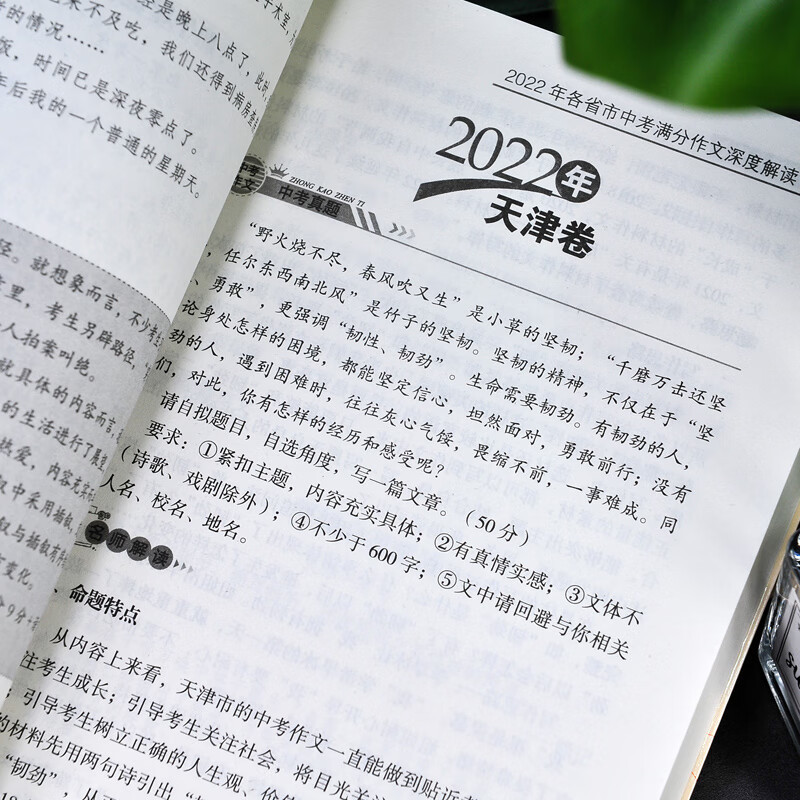 是晚上八点了，此时
来不及吃，我们还得到病房查
的情况……
时间已是深夜零点了。
年后我的一个普通的星期天。
就想象而言，不少考
考生另辟路径，
人拍案叫绝。
就具体的内容而言
的生活进行了展
热爱，内容充实
2022年各省市中考满分作文深度解读
2022年
天津卷
中考
作文
ZHONG KAO ZHEN TI
中考真题
“野火烧不尽，春风吹又生”是小草的坚韧；“千磨万击还坚
，任尔东西南北风”是竹子的坚韧。坚韧的精神，不仅在于“坚
、勇敢”，更强调“韧性、韧劲”。生命需要韧劲。有韧劲的人，
论身处怎样的困境，都能坚定信心，坦然面对，勇敢前行；没有
劲的人，遇到困难时，往往灰心气馁，畏缩不前，一事难成。同
们，对此，你有怎样的经历和感受呢？
请自拟题目，自选角度，写一篇文章。（50分）
要求：①紧扣主题，内容充实具体；②有真情实感；③文体不
（诗歌、戏剧除外）；④不少于600字；⑤文中请回避与你相关
人名、校名、地名。
名师解读
、命题特点
从内容上来看，天津市的中考作文一直能做到贴近
注考生成长；引导考生关注社会，将目光关注
；引导考生树立正确的人生观、价值
的材料先用两句诗引出“
“韧劲”，从